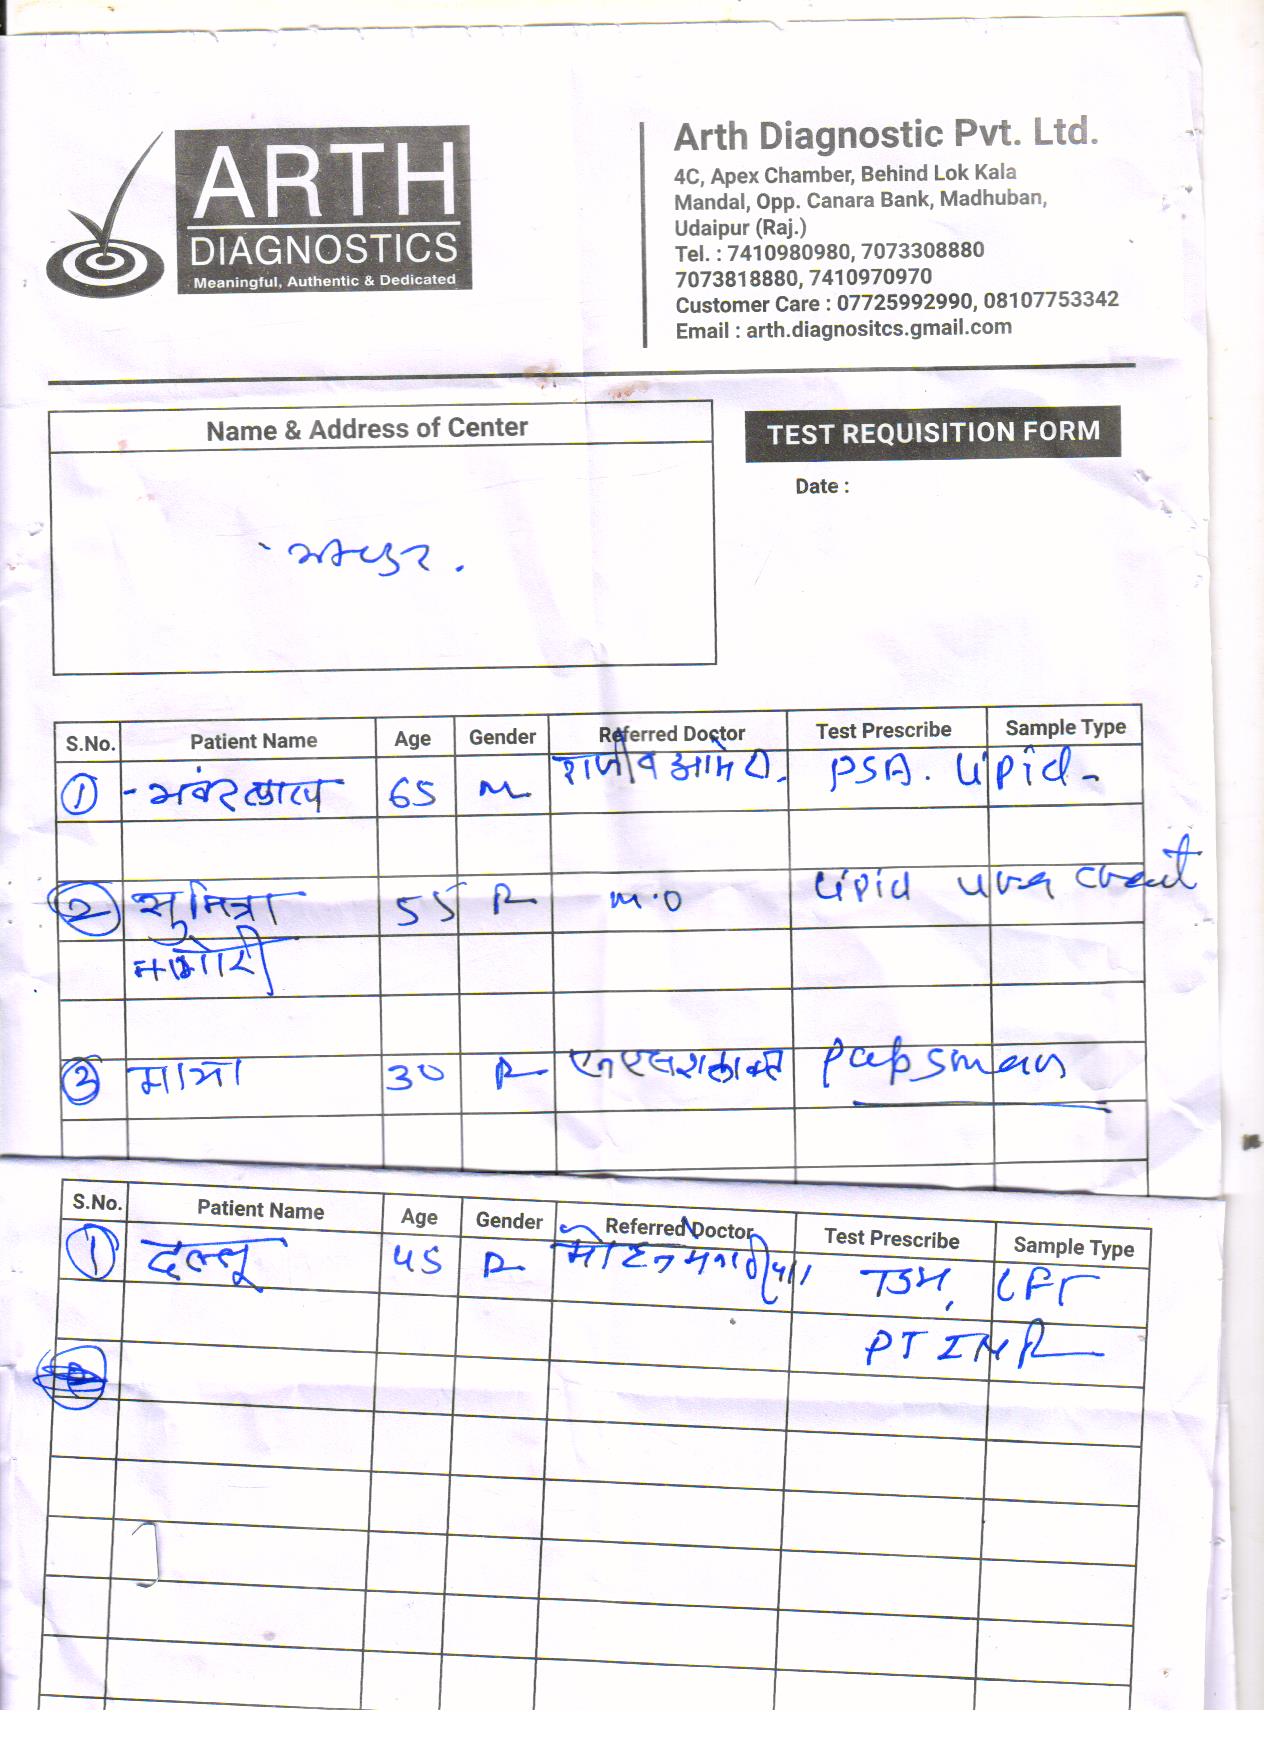 ARTH
DIAGNOSTICS
Meaningful, Authentic & Dedicated
Arth Diagnostic Pvt. Ltd.
4C, Apex Chamber, Behind Lok Kala
Mandal, Opp. Canara Bank, Madhuban,
Udaipur (Raj.)
Tel. : 7410980980, 7073308880
7073818880, 7410970970
Customer Care : 07725992990, 08107753342
Email : arth.diagnositcs.gmail.com
Name & Address of Center
TEST REQUISITION FORM
Date :
S.No. Patient Name Age Gender Referred Doctor Test Prescribe Sample Type
1 भंवरलाल 65 M राजीव PSA. Lipid
2 सुमित्रा 55 F M.O Lipid
3 माया 30 F Papsmear
S.No. Patient Name Age Gender Referred Doctor Test Prescribe Sample Type
1 दल्लू 45 F मोहन TSH, LFT
PT INR